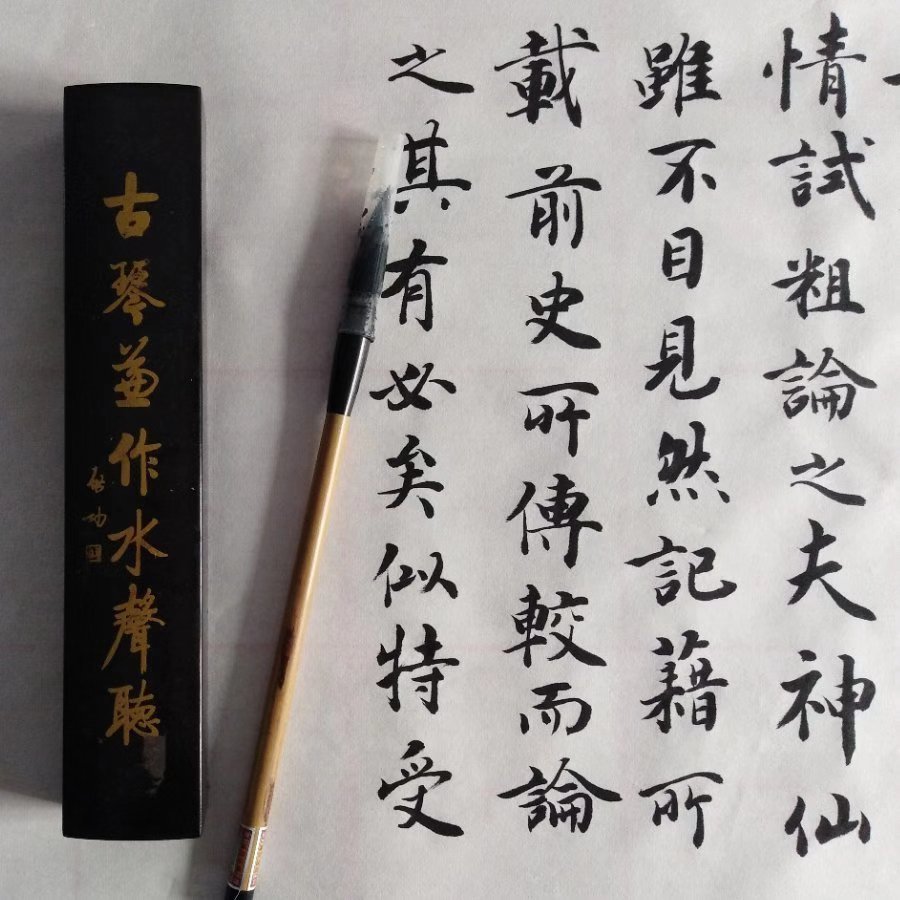 情試粗論之夫神仙
雖不目見然記藉所
載前史所傳較而論
之其有必矣似特受
古琴兼作水聲聽
啟功